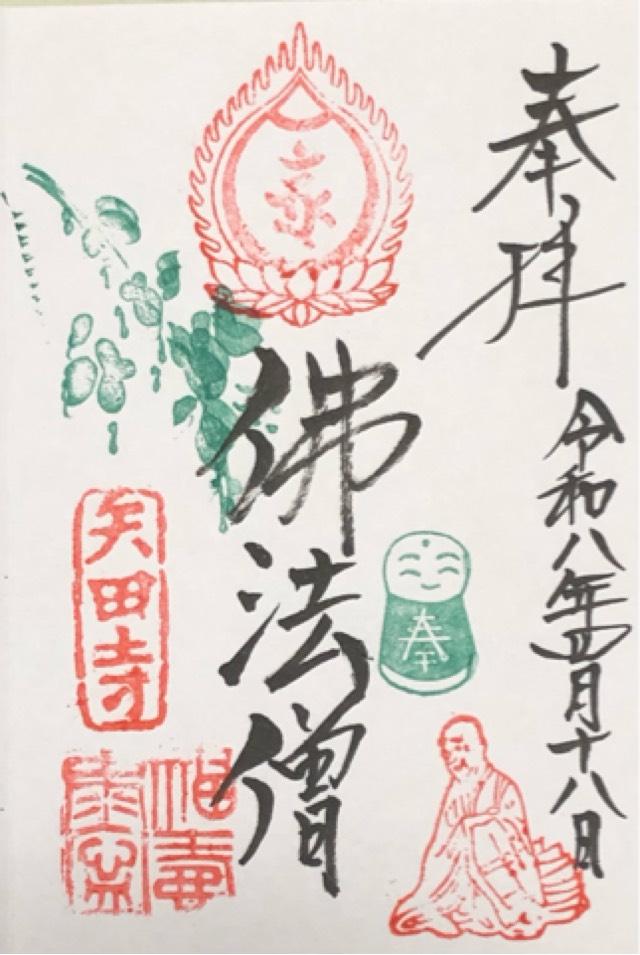 奉拝
令和八年四月十八日
佛法僧
奉
矢田寺